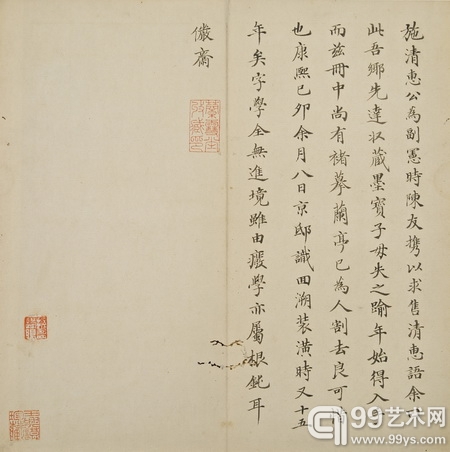 施清惠公為副憲時陳友携以求售清惠語余
此吾鄉先達収藏墨寶子毋失之踰年始得入
而茲冊中尚有褚摹蘭亭已為人割去良可
也康熙己卯余月八日京邸識回溯装潢時又十五
年矣字學全無進境雖由癈學亦屬根鈍耳
儆齋
99艺术网
www.99ys.com